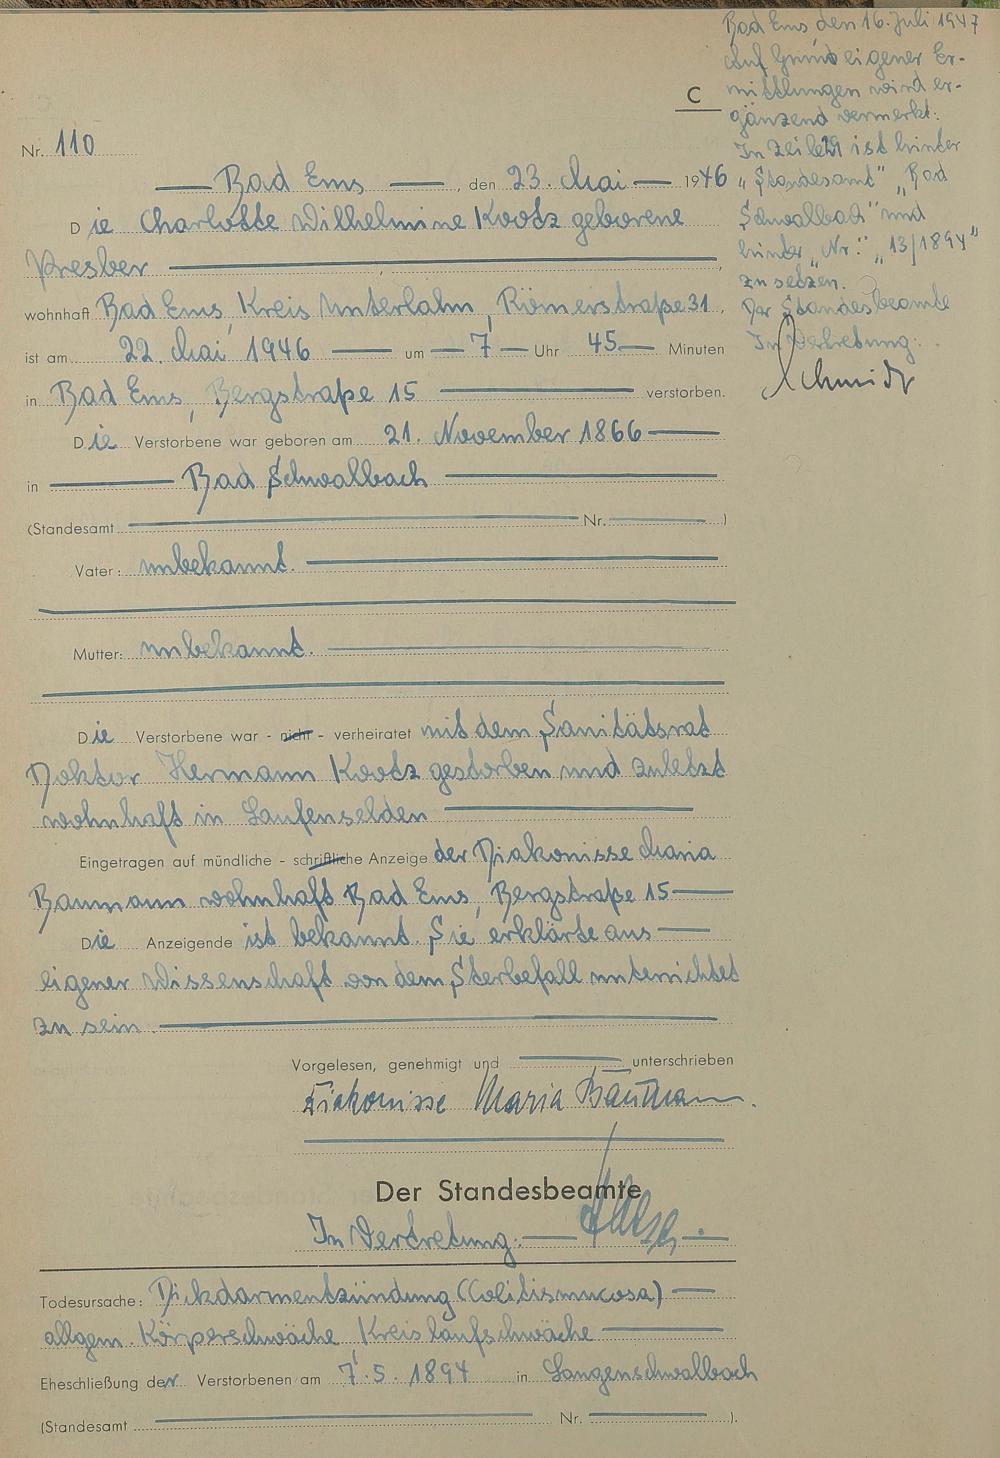 C
Nr. 110
Bad Ems, den 23. Mai 1946
Die Charlotte Wilhelmine Kootz geborene
Presber
wohnhaft Bad Ems, Kreis Unterlahn, Römerstraße 31,
ist am 22. Mai 1946 um 7 Uhr 45 Minuten
in Bad Ems, Bergstraße 15 verstorben.
Die Verstorbene war geboren am 21. November 1866
in Bad Schwalbach
(Standesamt Nr. )
Vater: unbekannt.
Mutter: unbekannt.
Die Verstorbene war - nicht - verheiratet mit dem Sanitätsrat
Doktor Hermann Kootz gestorben und zuletzt
wohnhaft in Laufenselden
Eingetragen auf mündliche - schriftliche Anzeige der Diakonisse Maria
Baumann wohnhaft Bad Ems, Bergstraße 15
Die Anzeigende ist bekannt. Sie erklärte aus
eigener Wissenschaft von dem Sterbefall unterrichtet
zu sein.
Vorgelesen, genehmigt und unterschrieben
Diakonisse Maria Baumann.
Der Standesbeamte
In Vertretung:
Todesursache: Dickdarmentzündung (Colitismucosa)
allgem. Körperschwäche, Kreislaufschwäche
Eheschließung der Verstorbenen am 7.5.1894 in Langenschwalbach
(Standesamt Nr. ).
Bad Ems, den 16. Juli 1947
Auf Grund eigener Er-
mittlungen wird er-
gänzend vermerkt:
In Zeile 29 ist hinter
"Standesamt" "Bad
Schwalbach" und
hinter "Nr." "13/1894"
zu setzen.
Der Standesbeamte
In Vertretung:
Schmidt